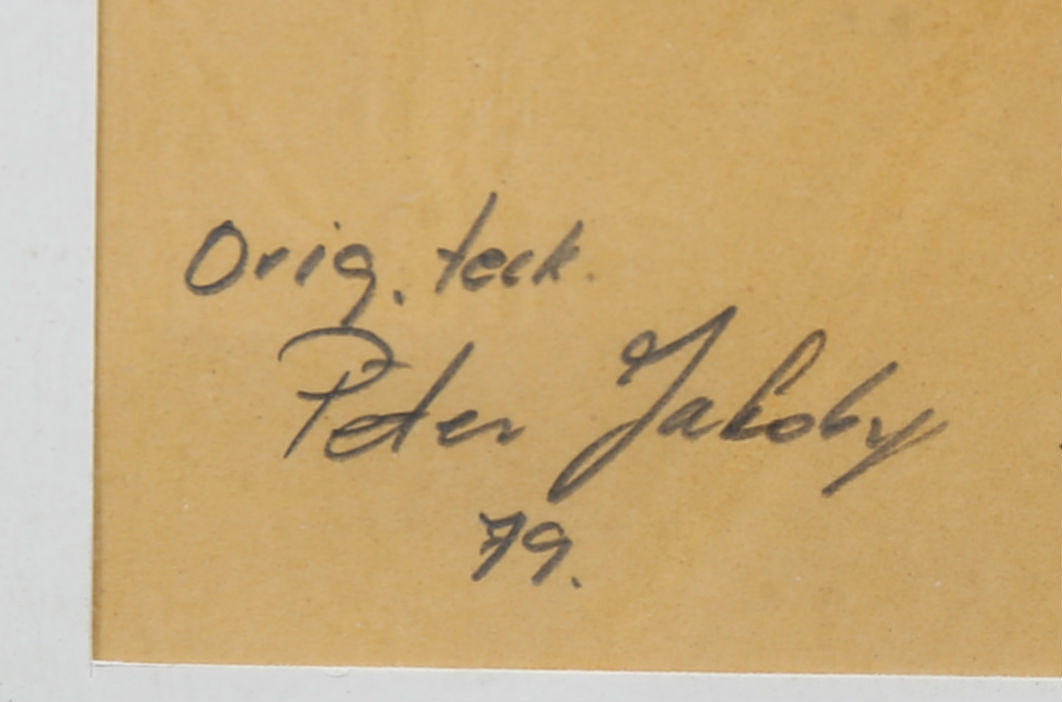 Orig. teck.
Peter Jakoby
79.